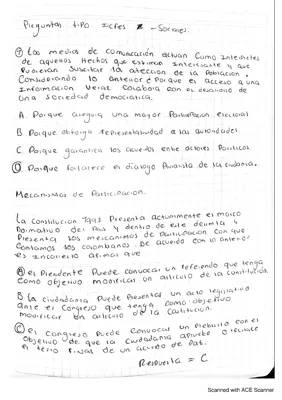 Preguntas tipo ICFES - Sociales.
① Los medios de comunicación actuan como interpretes
de aquenos Hechos que estiman interesante y que
pudieran suscitar la atección de la población.
Considerando lo anterior ¿Porque el acceso a una
Información veraz colabora con el desarrollo de
una sociedad democratica.
A Porque asegura una mayor Participación electoral
B Porque otorga representatividad a las autoridades.
C Porque garantiza los acuerdos entre actores Politicos
D Porque fortarece el dialogo Pluralista de la ciudania.
Mecanismos de Participación.
La constitución 1991 Presenta actualmente el marco
Normativo del Pais y dentro de este delimita y
Presenta los mercanismos de Participación con que
contamos los colombianos. De acuerdo con lo anterior
es incorrecto afirmar que
A el Presidente Puede convocar un referendo que tenga
como objetivo modificar un articulo de la constitución
B La ciudadania Puede Presentar un acto legislativo
ante el Congreso que tenga como objetivo
modificar un articulo de la Constitución.
C el Congreso Puede convocar un Plebicito con el
objetivo de que la ciudadania apruebe o rechace
el texto final de un acuerdo de Paz.
Respuesta = C
Scanned with ACE Scanner